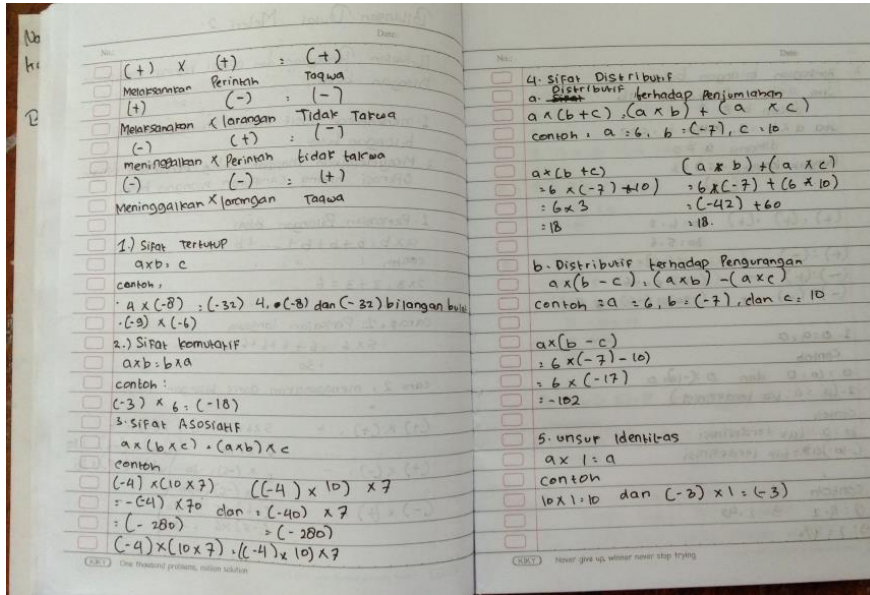 No.:
Date:
(+) x (+) = (+)
Melaksanakan Perintah Taqwa
(+) (-) = (-)
Melaksanakan x larangan Tidak Takwa
(-) (+) = (-)
meninggalkan x Perintah tidak takwa
(-) (-) = (+)
Meninggalkan x larangan Taqwa
1.) Sifat Tertutup
axb = c
contoh,
· 4 x (-8) = (-32) 4, (-8) dan (-32) bilangan bulat
· (-9) x (-6)
2.) Sifat komutatif
axb = bxa
contoh :
(-3) x 6 = (-18)
3. Sifat Asosiatif
a x (b x c) = (axb) x c
contoh
(-4) x (10 x 7) ((-4) x 10) x 7
= -(-4) x 70 dan = (-40) x 7
= (- 280) = (- 280)
(-4) x (10 x 7) = ((-4) x 10) x 7
KIKY One thousand problems, million solution
No.:
Date:
4. Sifat Distributif
a. Distributif terhadap Penjumlahan
a x (b + c) = (a x b) + (a x c)
contoh = a = 6, b = (-7), c = 10
a x (b + c) (a x b) + (a x c)
= 6 x (-7) + 10) = 6 x (-7) + (6 x 10)
= 6 x 3 = (-42) + 60
= 18 = 18.
b. Distributif terhadap Pengurangan
a x (b - c) = (axb) - (axc)
contoh = a = 6, b = (-7), dan c = 10
a x (b - c)
= 6 x (-7) - 10)
= 6 x (-17)
= -102
5. unsur Identitas
a x 1 = a
contoh
10 x 1 = 10 dan (-3) x 1 = (-3)
KIKY Never give up, winner never stop trying